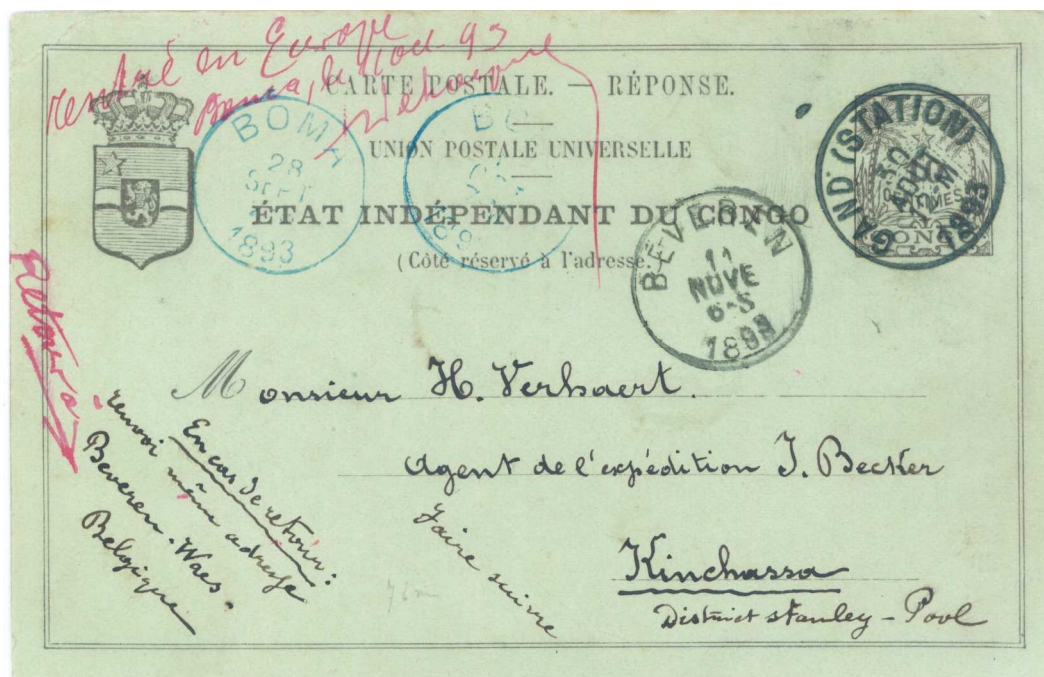 rentré en Europe
Boma, le
CARTE POSTALE. — RÉPONSE.
UNION POSTALE UNIVERSELLE
ÉTAT INDÉPENDANT DU CONGO
(Côté réservé à l'adresse.)
BOMA
28
SEPT
1893
BO
189
BEVEREN
11
NOVE
6-S
1893
GAND (STATION)
30
AOUT
1893
CENTIMES
CONGO
Retour à
Monsieur H. Verhaert.
Agent de l'expédition J. Becker
Kinchassa
District Stanley-Pool
Faire suivre
En cas de retour:
renvoi même adresse
Beveren-Waes.
Belgique